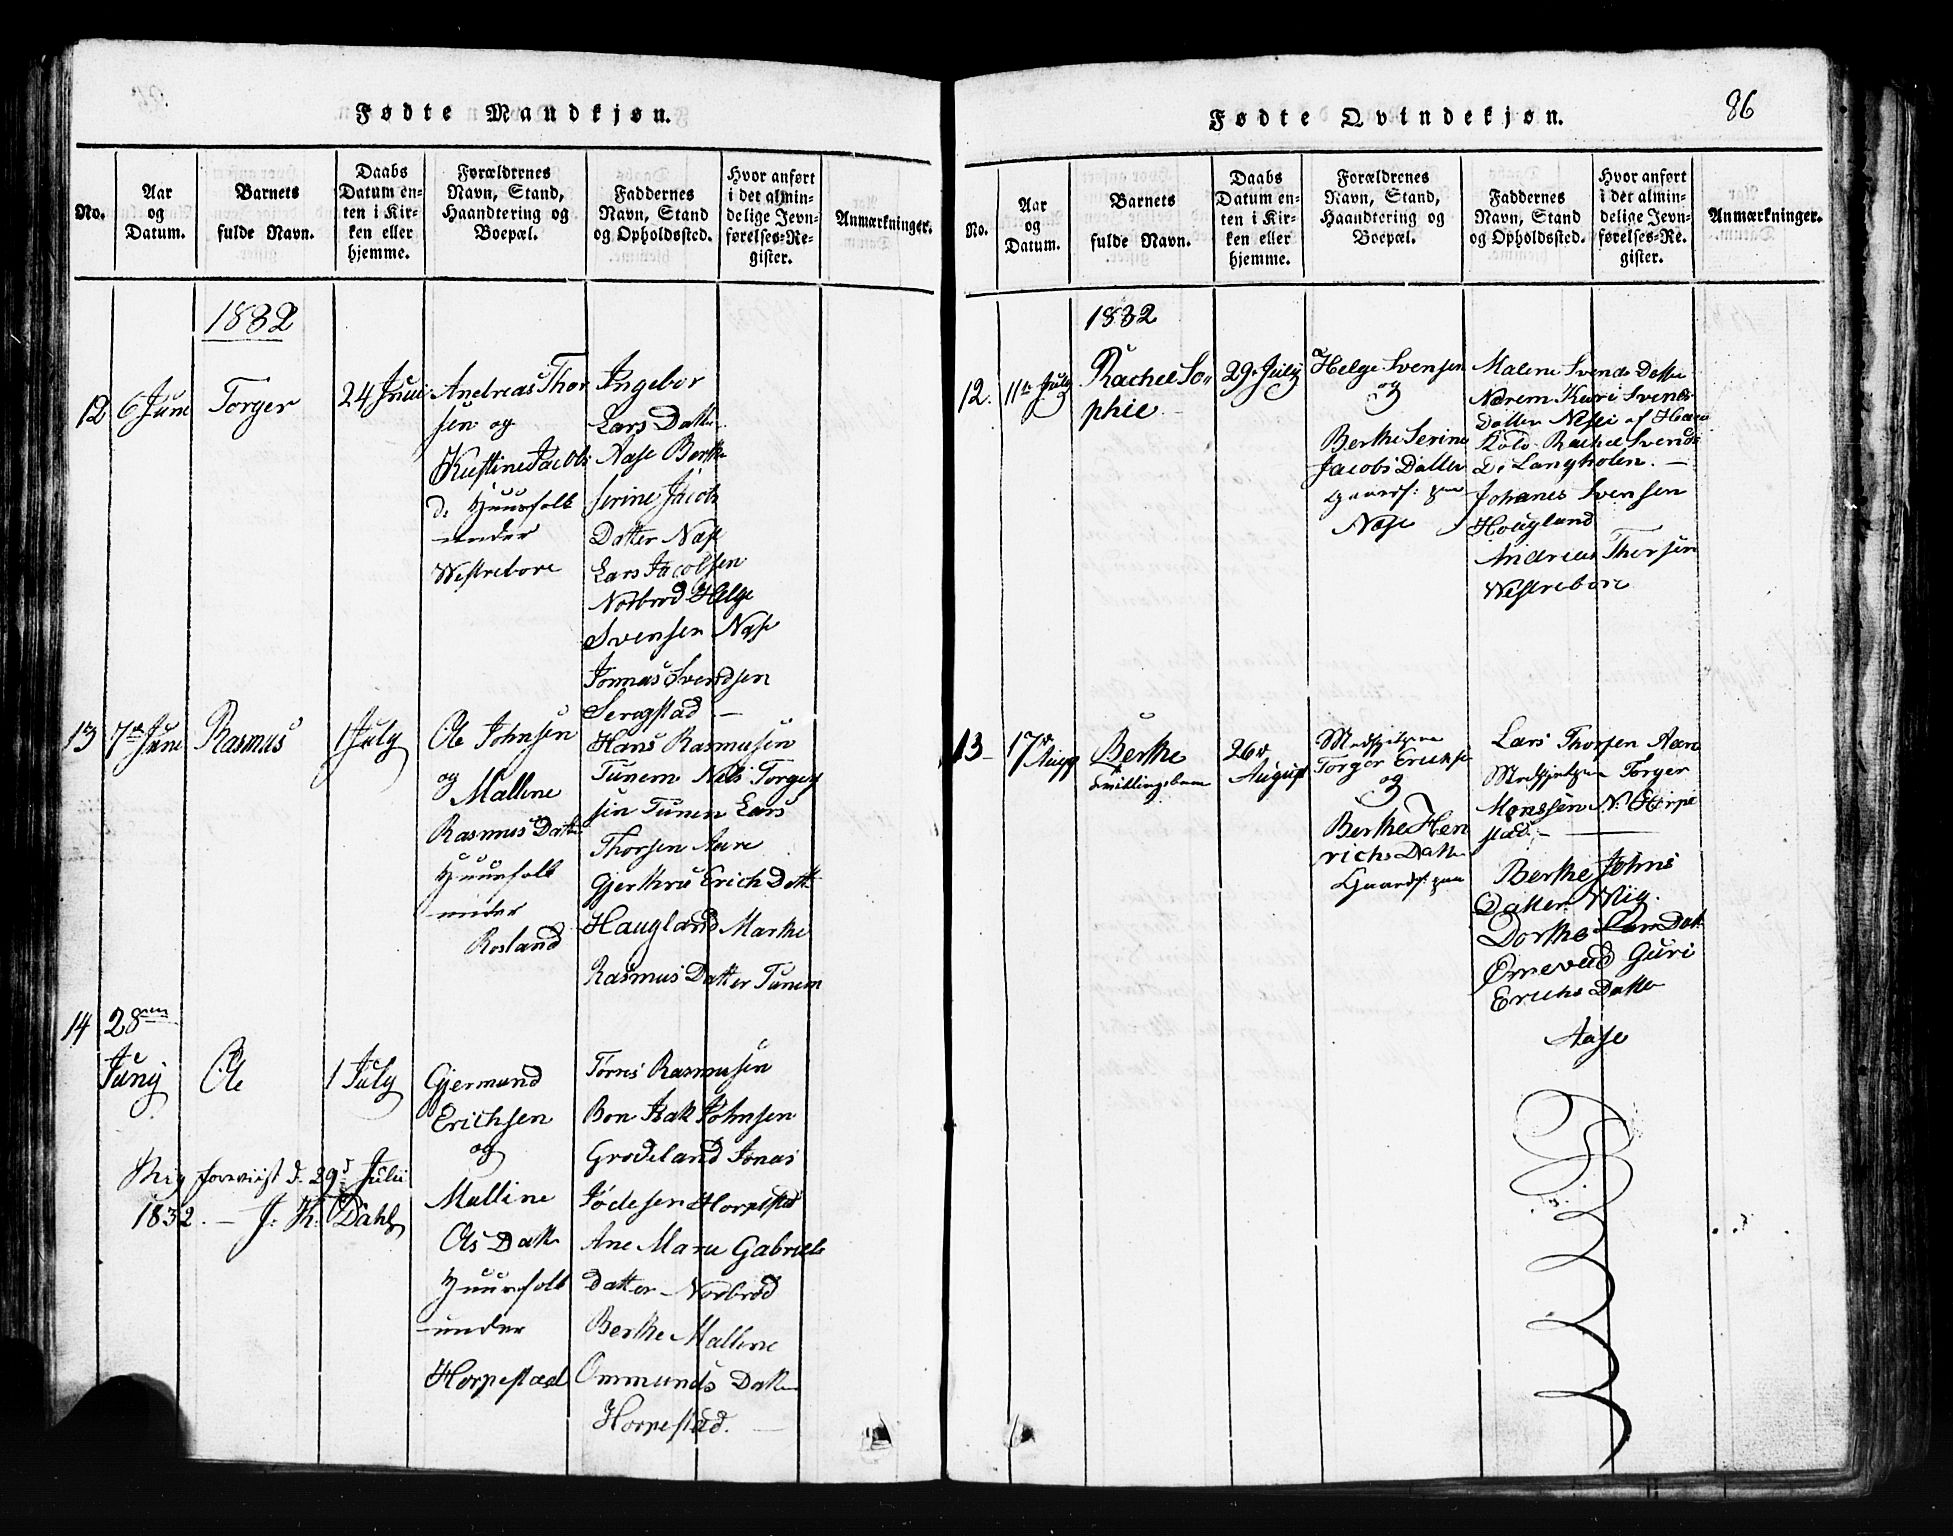 Fødte Mandkjøn.
No.
Aar
og
Datum.
Barnets
fulde Navn.
Daabs
Datum en-
ten i Kir-
ken eller
hjemme.
Forældrenes
Navn, Stand,
Haandtering og
Boepæl.
Faddernes
Navn, Stand
og Opholdssted.
Hvor anført
i det almin-
delige Jevn-
førelses-Re-
gister.
Anmærkninger.
1832
12
6 Juni
Torger
24 Juni
Andreas Thor
sen og
Kistine Jacobs
D. Huusfolk
under
Westrebøe
Ingebor
Lars Datter
Næse Berthe
Serine Jacobs
Datter Næse
Lars Jacobsen
Norbrød Helge
Svensen Næse
Jonnas Svendsen
Serigstad –
13
7de Juni
Rasmus
1 July
Ole Johnsen
og
Malline
Rasmus Datter
Huusfolk
under
Rosland
Hans Rasmusen
Tunem Nels Torger
sen Tunem Lars
Thorsen Aare
Gjerthru Erich Datt
Haugland Marthe
Rasmus Datter Tunem
14
28
Junij
Ole
1 July
Gjermund
Erichsen
og
Malline
Ols Datter
Huusfolk
under
Horpestad
Tørres Rasmusen
Bon Isak Johnsen
Grødeland Jonas
Tødesen Horpestad
Ane Marie Gabriels
Datter – Norbrød
Berthe Malline
Ommunds Datter
Horpestad. –
Mig foreviist d. 29d Julii
1832. – J: K: Dahl
Fødte Qvindekjøn.
86
No.
Aar
og
Datum.
Barnets
fulde Navn.
Daabs
Datum en-
ten i Kir-
ken eller
hjemme.
Forældrenes
Navn, Stand,
Haandtering og
Boepæl.
Faddernes
Navn, Stand
og Opholdssted.
Hvor anført
i det almin-
delige Jevn-
førelses-Re-
gister.
Anmærkninger.
1832
12.
11te July
Rachel So-
phie
29. July
Helge Svensen
og
Berthe Serine
Jacobs Datter
Næse
Malene Svends Datter
Nærem Kari Svends
Datter Næse af
Rachel Svends
D: Langholen. –
Johanes Svensen
Hougland
Andreas Thorsen
Westrebøe
13
17de
Aug
Berthe
tvillingebarn
26de
August
Torger Eriksen
og
Berthe Hen
richs Datter
Lars Thorsen Aare
Torger
Monssen N. Horpe
stad. –
Berthe Johns
Datter Wiig.
Dorthe Lars Datt
Ørneved Guri
Erichs Datter
Aase